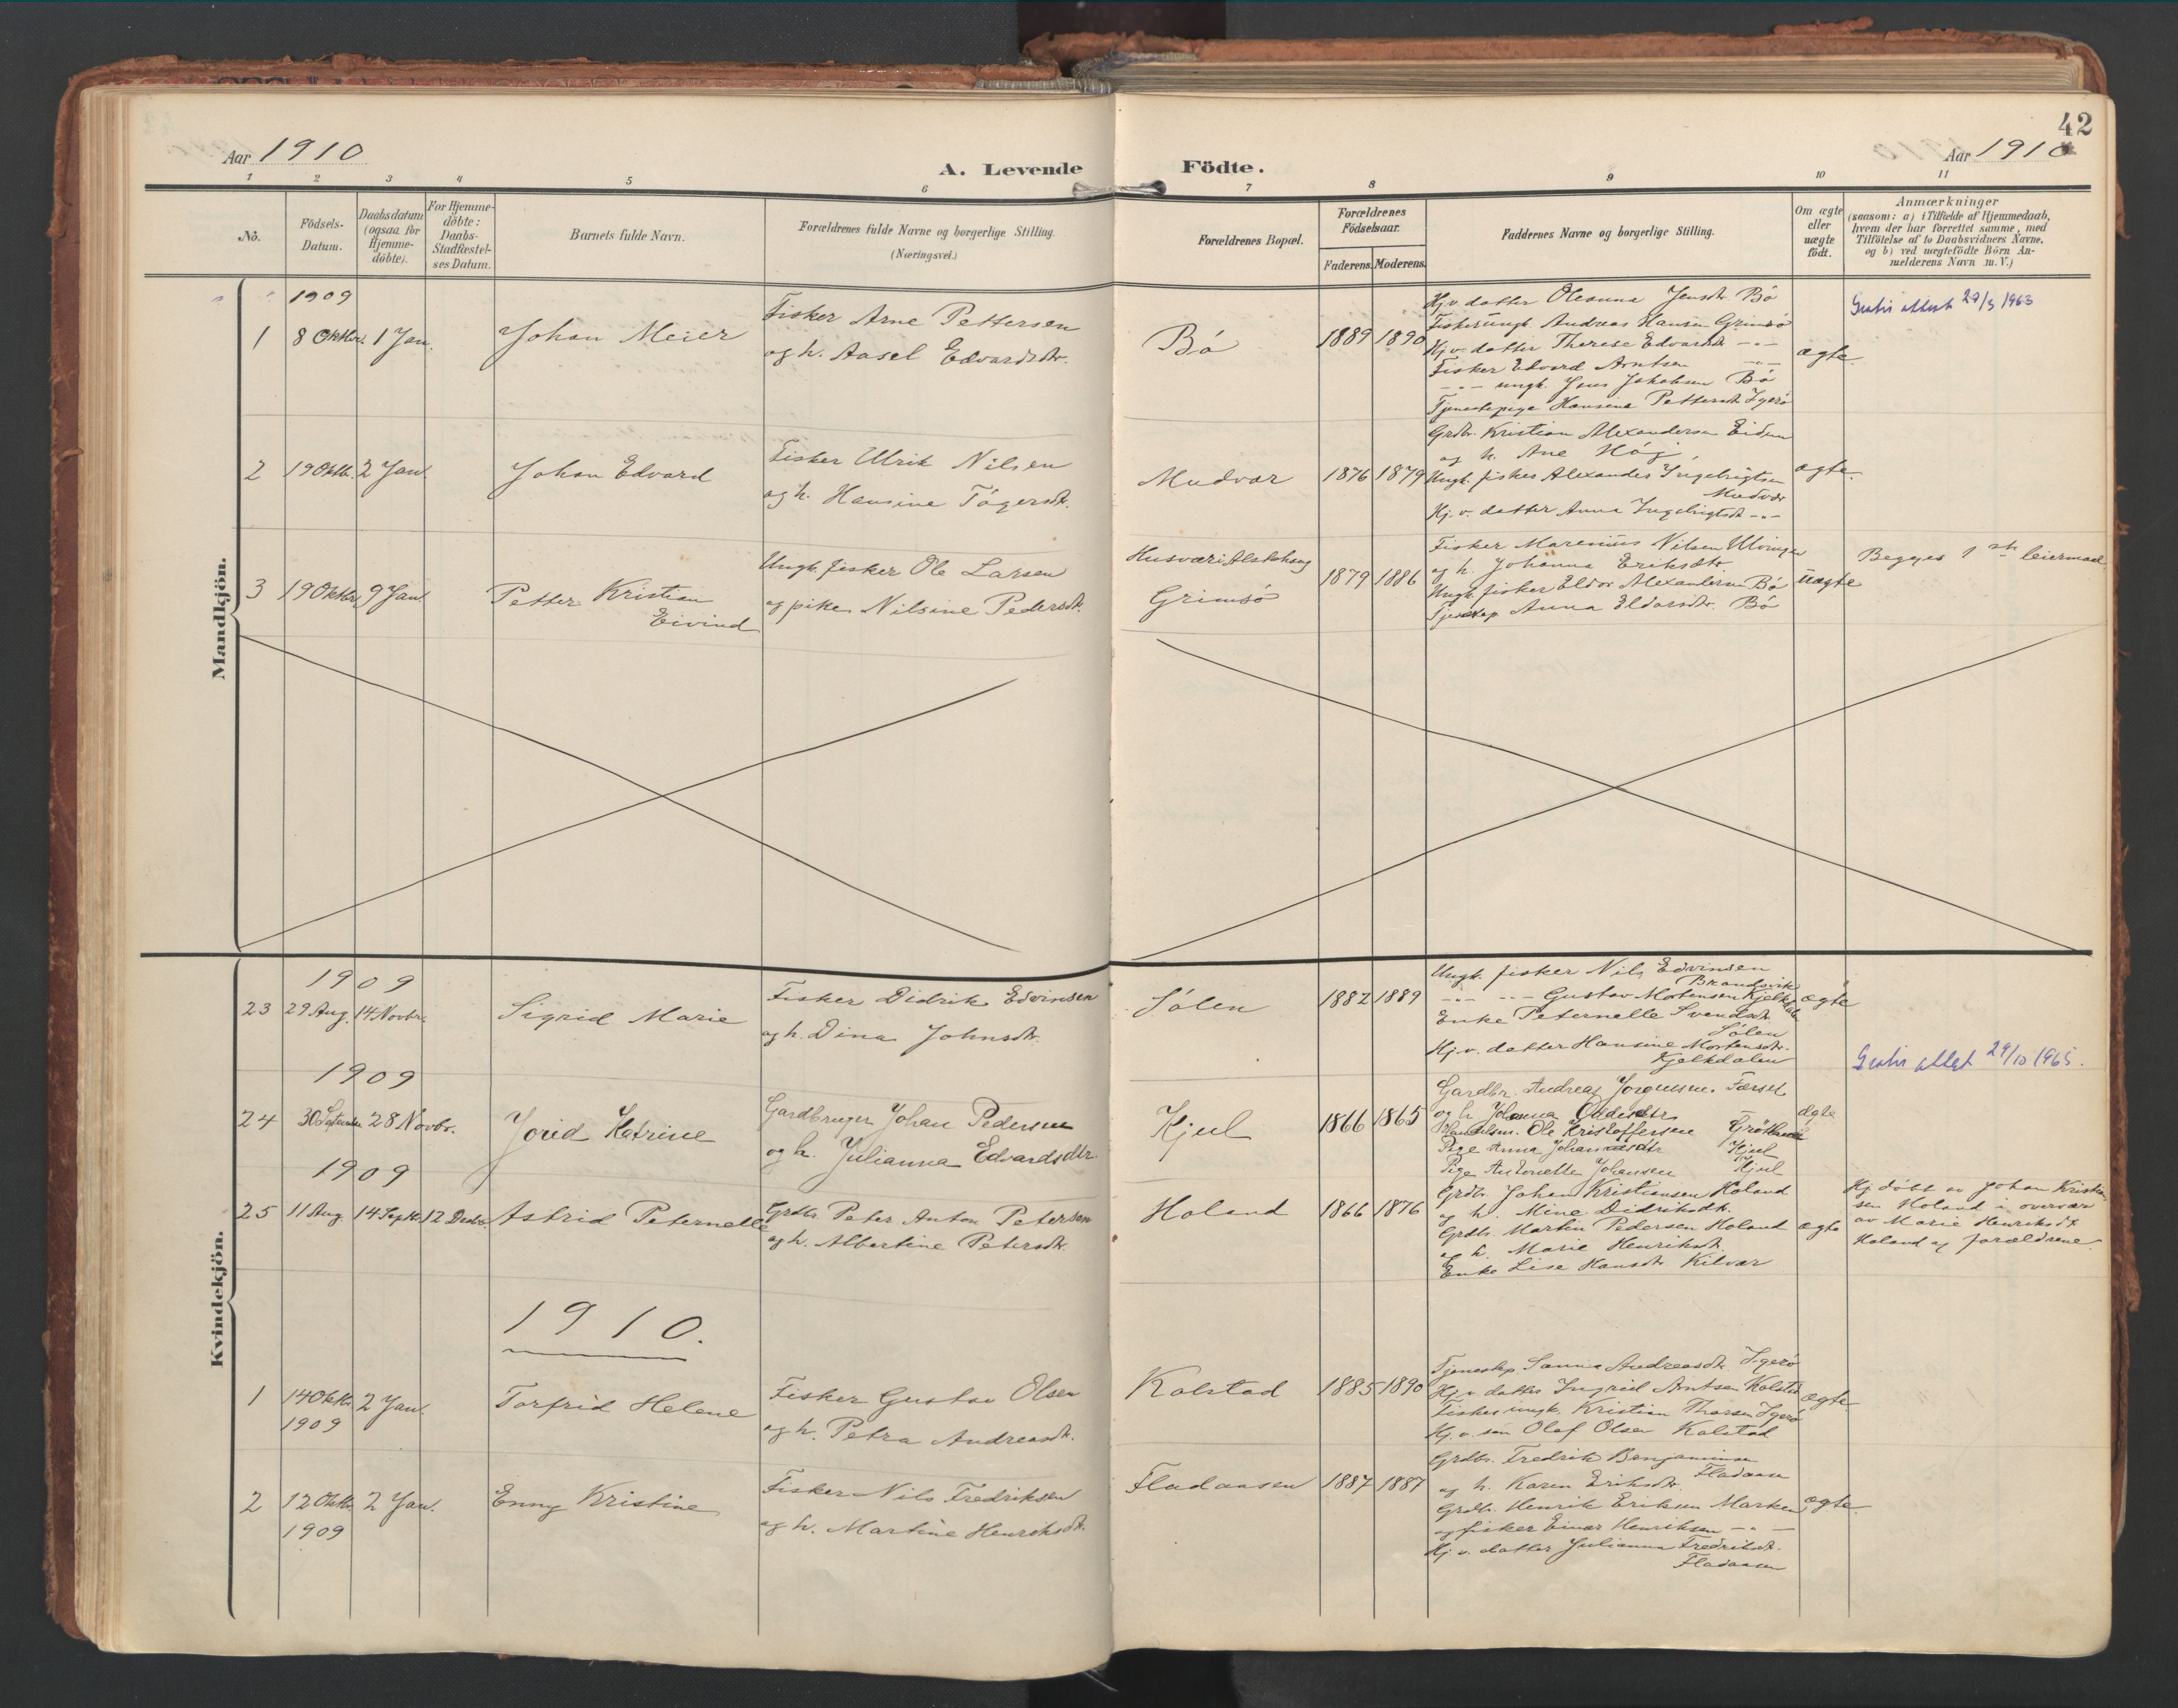 42
Aar 1910
A. Levende Födte.
Aar 1910
1 2 3 4 5 6 7 8 9 10 11
No.
Födsels-
Datum.
Daabsdatum
(ogsaa for
Hjemme-
döbte).
For Hjemme-
döbte:
Daabs-
Stadfæstel-
ses Datum.
Barnets fulde Navn.
Forældrenes fulde Navne og borgerlige Stilling.
(Næringsvei.)
Forældrenes Bopæl.
Forældrenes
Födselsaar.
Faderens. Moderens.
Faddernes Navne og borgerlige Stilling.
Om ægte
eller
uægte
födt.
Anmærkninger
(saasom: a) i Tilfælde af Hjemmedaab,
hvem der har forrettet samme, med
Tilföielse af to Daabsvidners Navne,
og b) ved uægtefödte Börn An-
melderens Navn m. V.)
Mandkjön.
1909
1 8 Oktbr. 1 Jan.
Johan Meier
Fisker Arne Pettersen
og h. Aasel Edvardsdtr.
Bó
1889 1890
Hj.v. datter Oleanna Jensdtr. Bó
Fisker ungk. Andreas Hansen Grimsó
Hj.v. datter Therese Edvardsdtr. -"-
Fisker Edvard Arntsen -"-
-"- ungk. Jens Jakobsen Bó
Tjenestepige Hansine Pettersdtr. Igeró
ægte.
Gratis attest 29/3 1963
2 19 Oktb. 2 Jan.
Johan Edvard
Fisker Ulrik Nilsen
og h. Hansine Tógersdtr.
Mudvar
1876 1879
Grdbr. Kristian Alexandersen Eidem
og h. Ane Høg
Ungk. fisker Alexander Ingebrigtsen
Mudvar
Hj.v. datter Anna Ingebrigtsdtr. -"-
ægte.
3 19 Oktbr. 9 Jan.
Petter Kristian
Eivind
Ungk. fisker Ole Larsen
og pike Nilsine Pedersdtr.
Husvær i Alstahaug
Grimsó
1879 1886
Fisker Marenius Nilsen Ulvingen
og h. Johanna Eriksdtr.
Ungk. fisker Eldor Alexandersen Bó
Tjenestep. Anna Eldorsdtr. Bó
uægte
Begges 1ste leiermaal.
Kvindekjön.
1909
23 29 Aug. 14 Novbr.
Sigrid Marie
Fisker Didrik Edvinsen
og h. Dina Johnsdtr.
Sólen
1882 1889
Ungk. fisker Nils Edvinsen
Brandsvik
-"- -"- Gustav Mortensen Kjelkdalen
Enke Peternelle Svendsdtr.
Sólen
Hj.v. datter Hansine Mortensdtr.
Kjelkdalen
ægte
1909
24 30 September 28 Novbr.
Jorid Katrine
Gardbruger Johan Pedersen
og h. Julianna Edvardsdtr.
Kjul
1866 1865
Gardbr. Andreas Jorgensen. Færset
og h. Johanna
Handelsm. Ole Kristoffersen
Pige Anna Johannesdtr Kjul
Pige Antonette Johansen Kjul
ægte
Gratis attest 29/10 1965.
1909
25 11 Aug. 14 Septbr. 12 Decbr.
Astrid Peternelle
Grdbr. Peter Anton Petersen
og h. Albertine Petersdtr.
Holand
1866 1876
Grdbr. Johan Kristiansen Holand
og h. Mine Didriksdtr.
Grdbr. Martin Pedersen Holand
og h. Marie Henriksdtr.
Enke Lise Hansdtr. Kilvær
ægte
Hj. döbt av Johan Kristian-
sen Holand i overvær
av Marie Henriksdtr
Holand og forældrene.
1910.
1 14 Oktbr. 2 Jan.
1909
Torfrid Helene
Fisker Gustav Olsen
og h. Petra Andreasdtr.
Kolstad
1885 1890
Tjenestep. Sanna Andreasdtr. Igerö
Hj.v. datter Ingrid Arntsen Kolstad
Fisker ungk. Kristian Thorsen Igerö
Hj.v. sön Olaf Olsen Kolstad
ægte.
2 12 Oktbr. 2 Jan.
1909
Enny Kristine
Fisker Nils Fredriksen
og h. Martine Henriksdtr.
Fladaasen
1887 1887
Grdbr. Fredrik Benjaminsen
Fladaasen
og h. Karen Eriksdtr.
Grdbr. Henrik Eriksen Marken
og fisker Einar Henriksen -"-
Hj.v. datter Julianna Fredriksdtr.
Fladaasen
ægte.